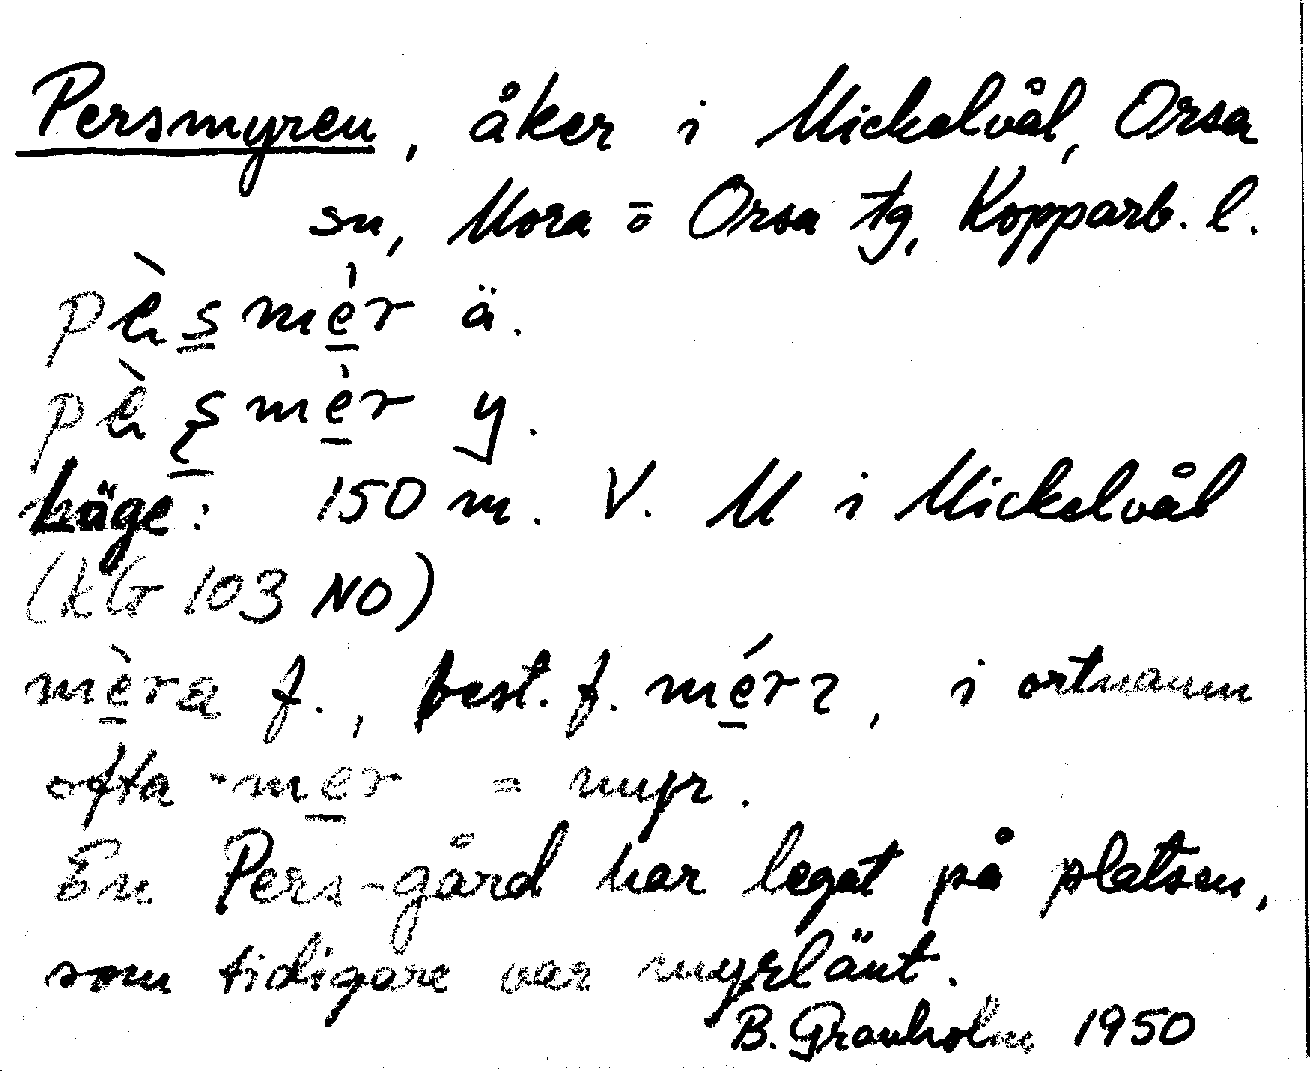 Persmyren, åker i Mickelvål, Orsa
sn, Mora o Orsa tg, Kopparb. l.
pèsmér ä.
pèsmèr y.
Läge: 150 m. V. M i Mickelvål
(kG 103 NO)
mèra f., best. f. mérɂ, i ortnamn
ofta -mer = myr.
En Pers-gård har legat på platsen,
som tidigare var myrlänt.
B. Granholm 1950